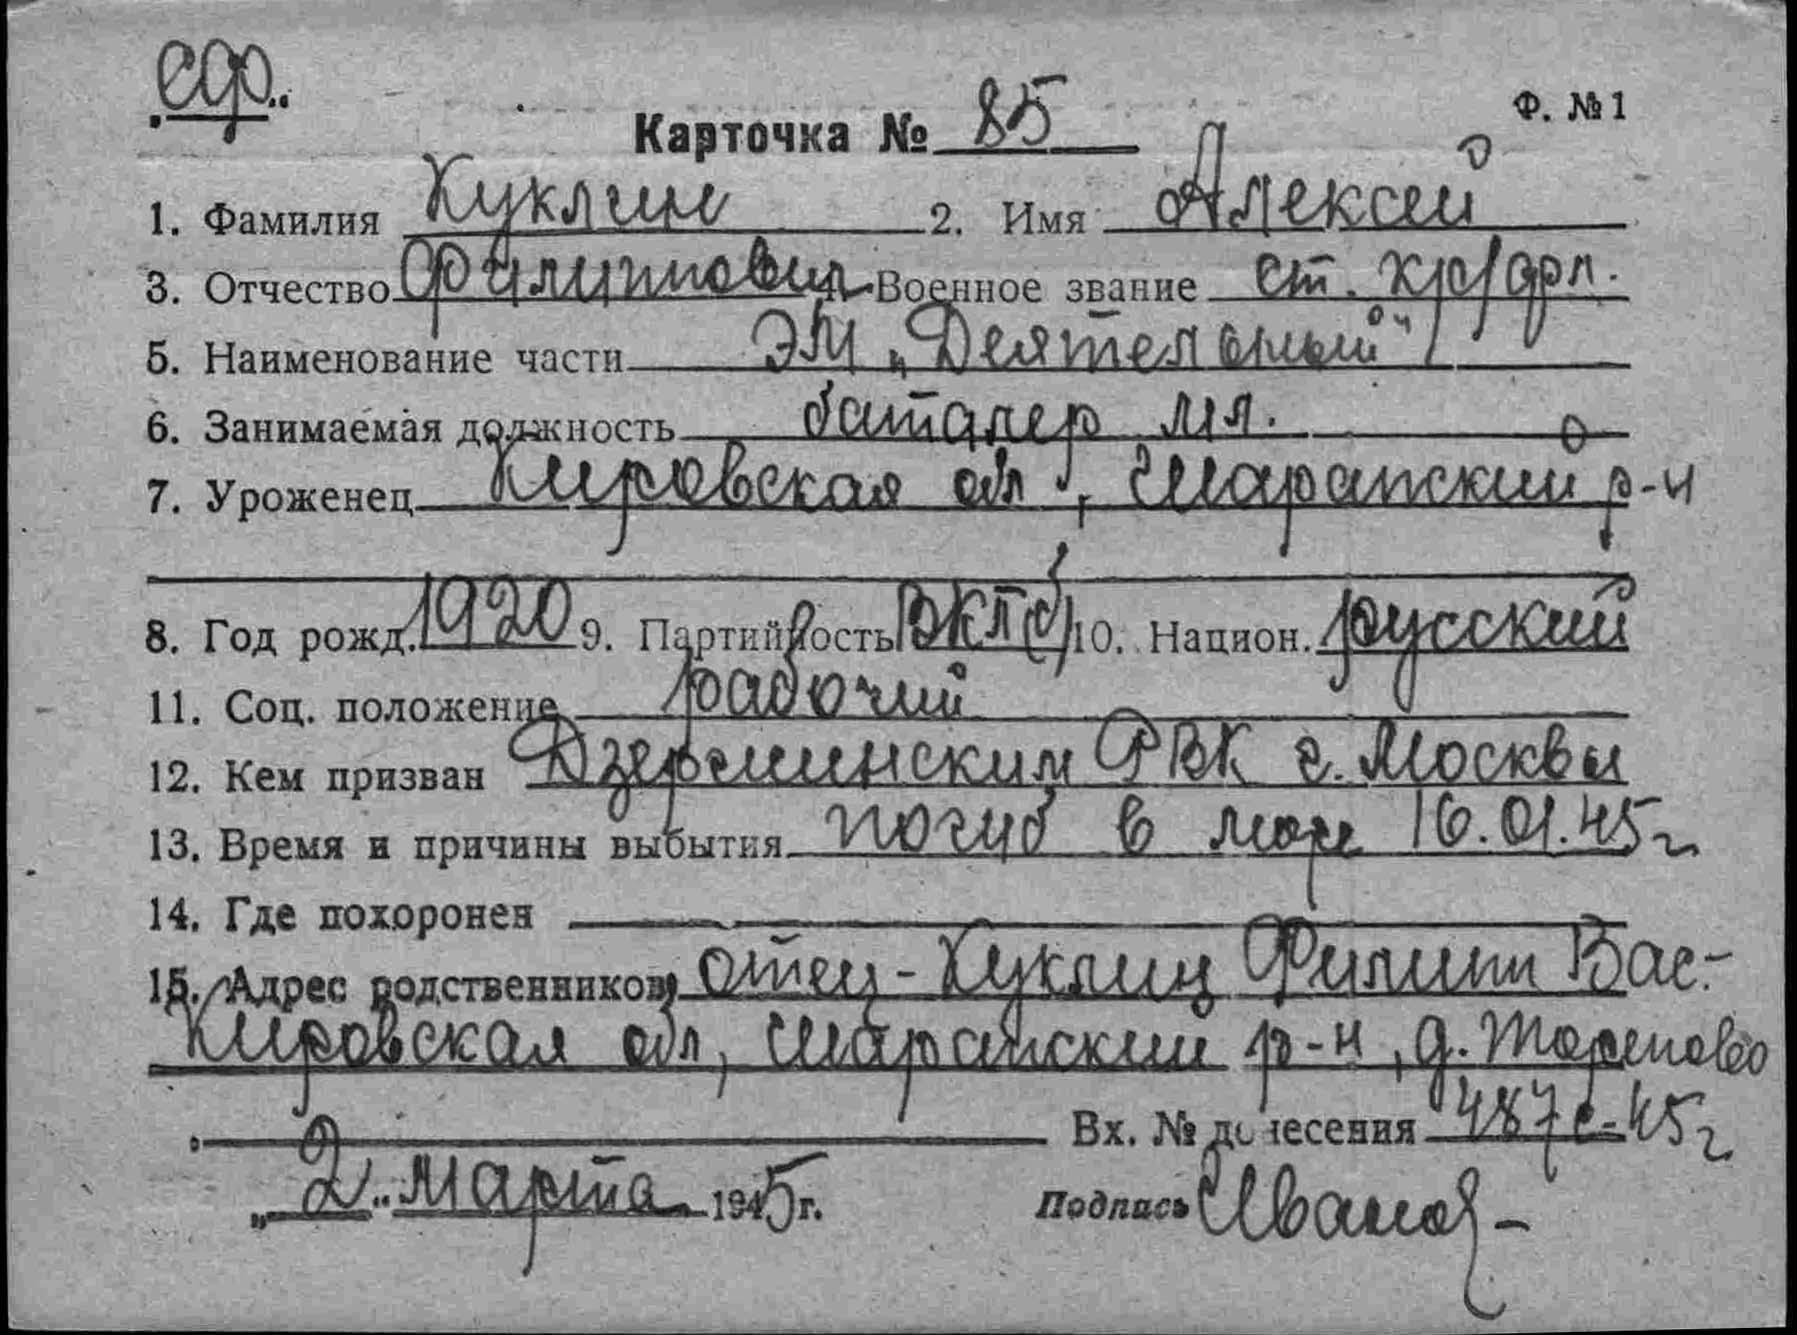 Карточка № 85
Ф. № 1
1. Фамилия Куклин 2. Имя Алексей
3. Отчество Филиппович 4. Военное звание ст. кр/фл.
5. Наименование части ЭМ „Деятельный“
6. Занимаемая должность баталер мл.
7. Уроженец Кировская обл, Шарапский р-н
8. Год рожд. 1920 9. Партийность ВКП(б) 10. Национ. русский
11. Соц. положение рабочий
12. Кем призван Дзержинским РВК г. Москвы
13. Время и причины выбытия погиб в море 16.01.45г
14. Где похоронен
15. Адрес родственников отец - Куклин Филипп Вас.-
Кировская обл, Шарапский р-н, д.
Вх. № донесения 45г
„2“ марта 1945г. Подпись Иванов